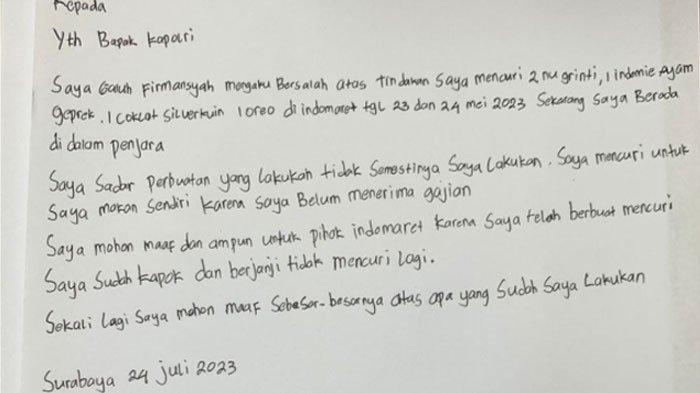 Kepada
Yth Bapak Kapolri
Saya Galuh Firmansyah mengaku Bersalah atas tindakan Saya mencuri 2 nugrinti, 1 indomie Ayam
geprek. 1 Coklat Silverkuin 1 oreo di indomaret tgl 23 dan 24 mei 2023 Sekarang Saya Berada
di dalam penjara
Saya Sadar Perbuatan yang lakukan tidak Semestinya Saya Lakukan. Saya mencuri untuk
Saya makan Sendiri karena Saya Belum menerima gajian
Saya mohon maaf dan ampun untuk pihak indomaret karena Saya telah berbuat mencuri
Saya Sudah Kapok dan berjanji tidak mencuri Lagi.
Sekali Lagi Saya mohon maaf Sebesar-besarnya atas apa yang Sudah Saya Lakukan
Surabaya 24 juli 2023